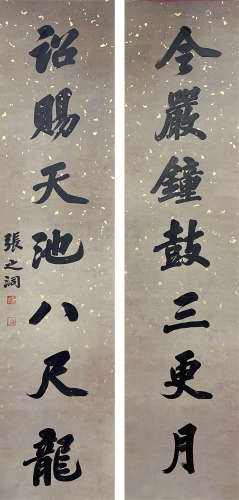 今嚴鐘鼓三更月
詔賜天池八尺龍
張之洞